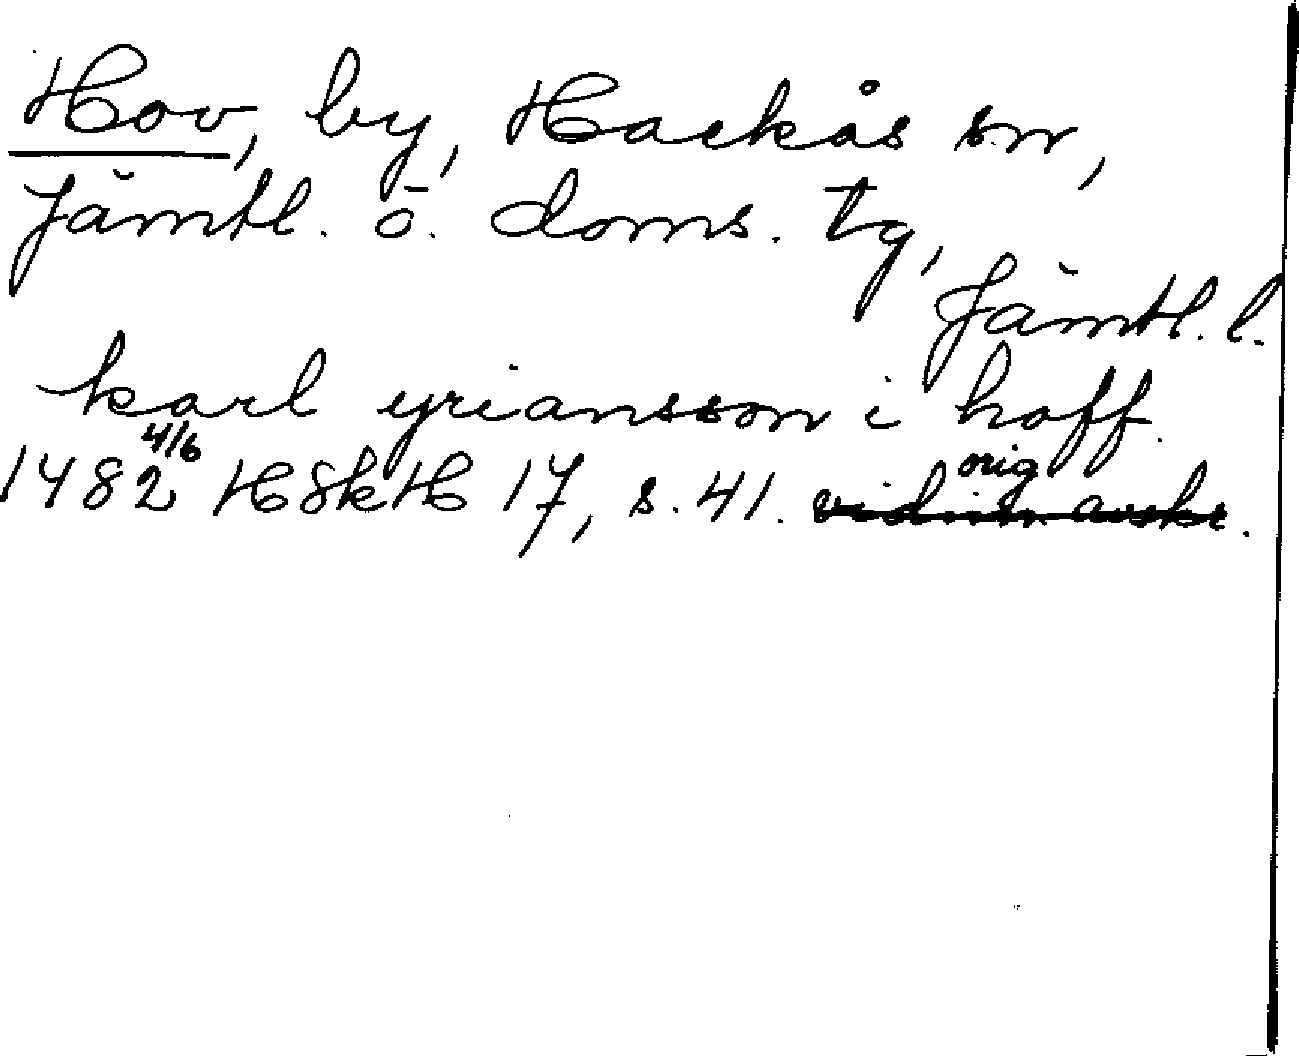 Hov, by, Hackås sn,
Jämtl. ö. doms. tg,
Jämtl. l.
karl yriansson i hoff.
1482 4/6 HSkH 17, s. 41. orig
vidim. avskr.